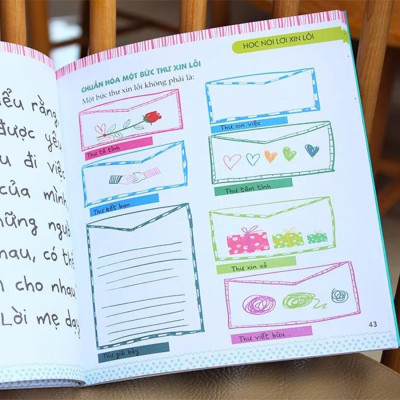 ểu rằng
được yêu
u đi việc
của mình
hững người
nhau, có thể
m cho nhau
Lời mẹ dạy
HỌC NÓI LỜI XIN LỖI
CHUẨN HÓA MỘT BỨC THƯ XIN LỖI
Một bức thư xin lỗi không phải là:
Thư tỏ tình
Thư xin việc
Thư kết bạn
Thư tâm tình
Thư xin xỏ
Thư giãi bày
Thư viết bừa
43